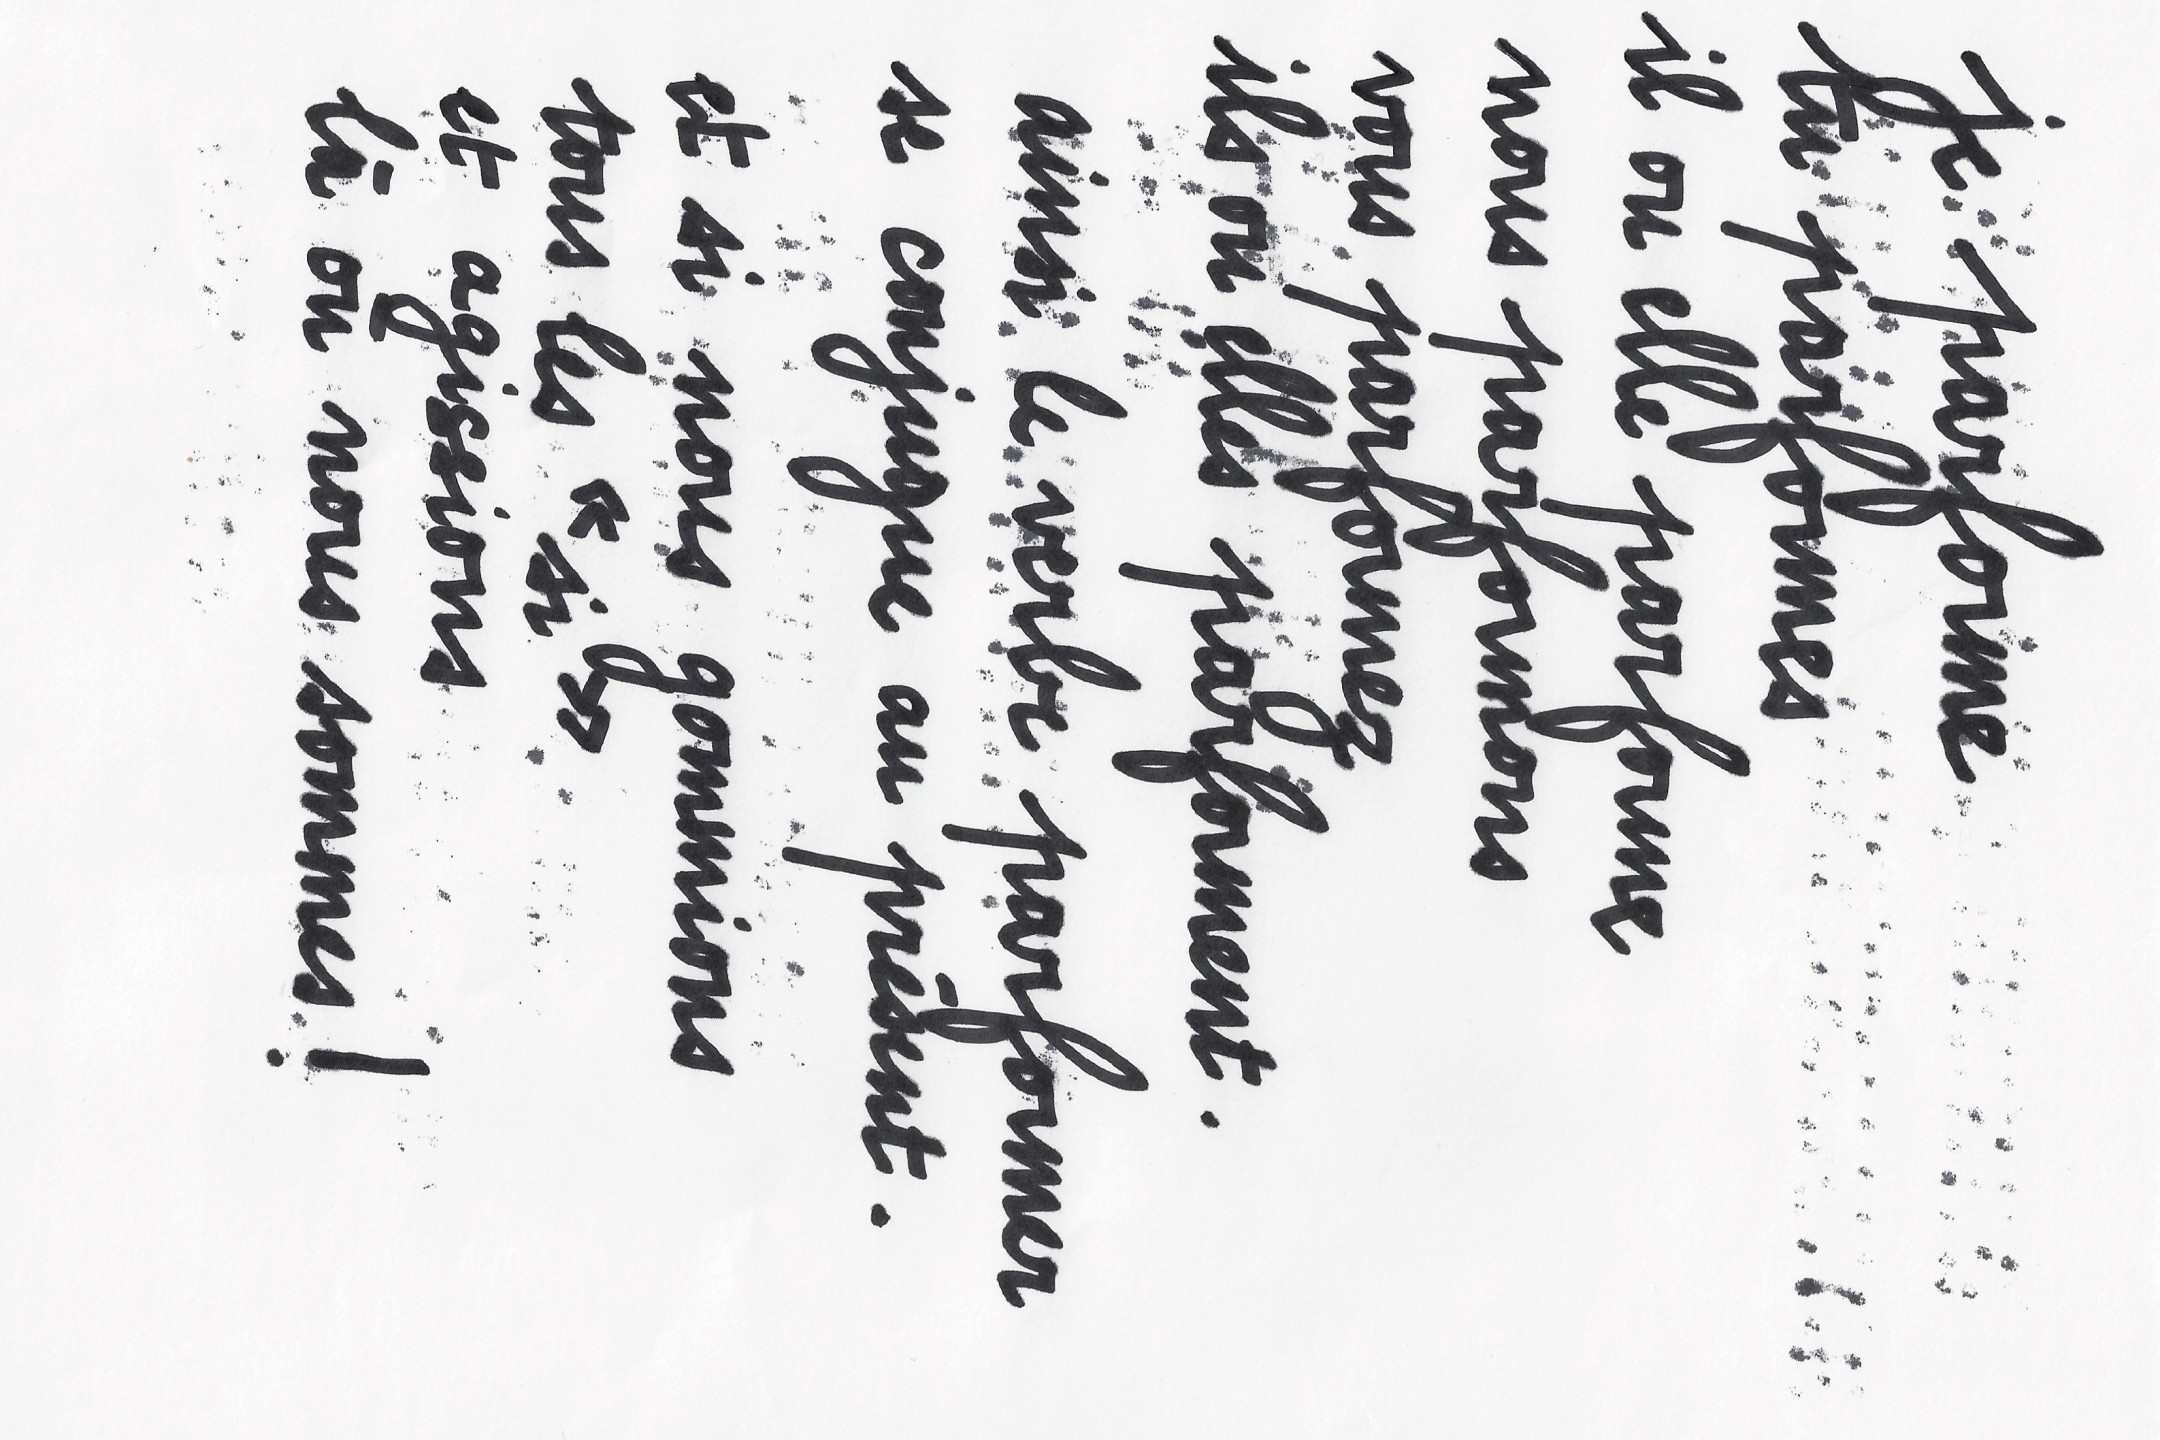 Je parforme
tu parformes
il ou elle parforme
nous parformons
vous parformez
ils ou elles parforment.
ainsi le verbe parformer
se conjugue au présent.
et si nous gommions
tous les « si »
et agissions
là où nous sommes !